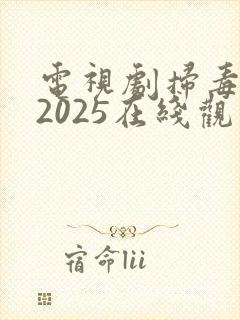 電視劇掃毒
2025在綫觀
宿命lii